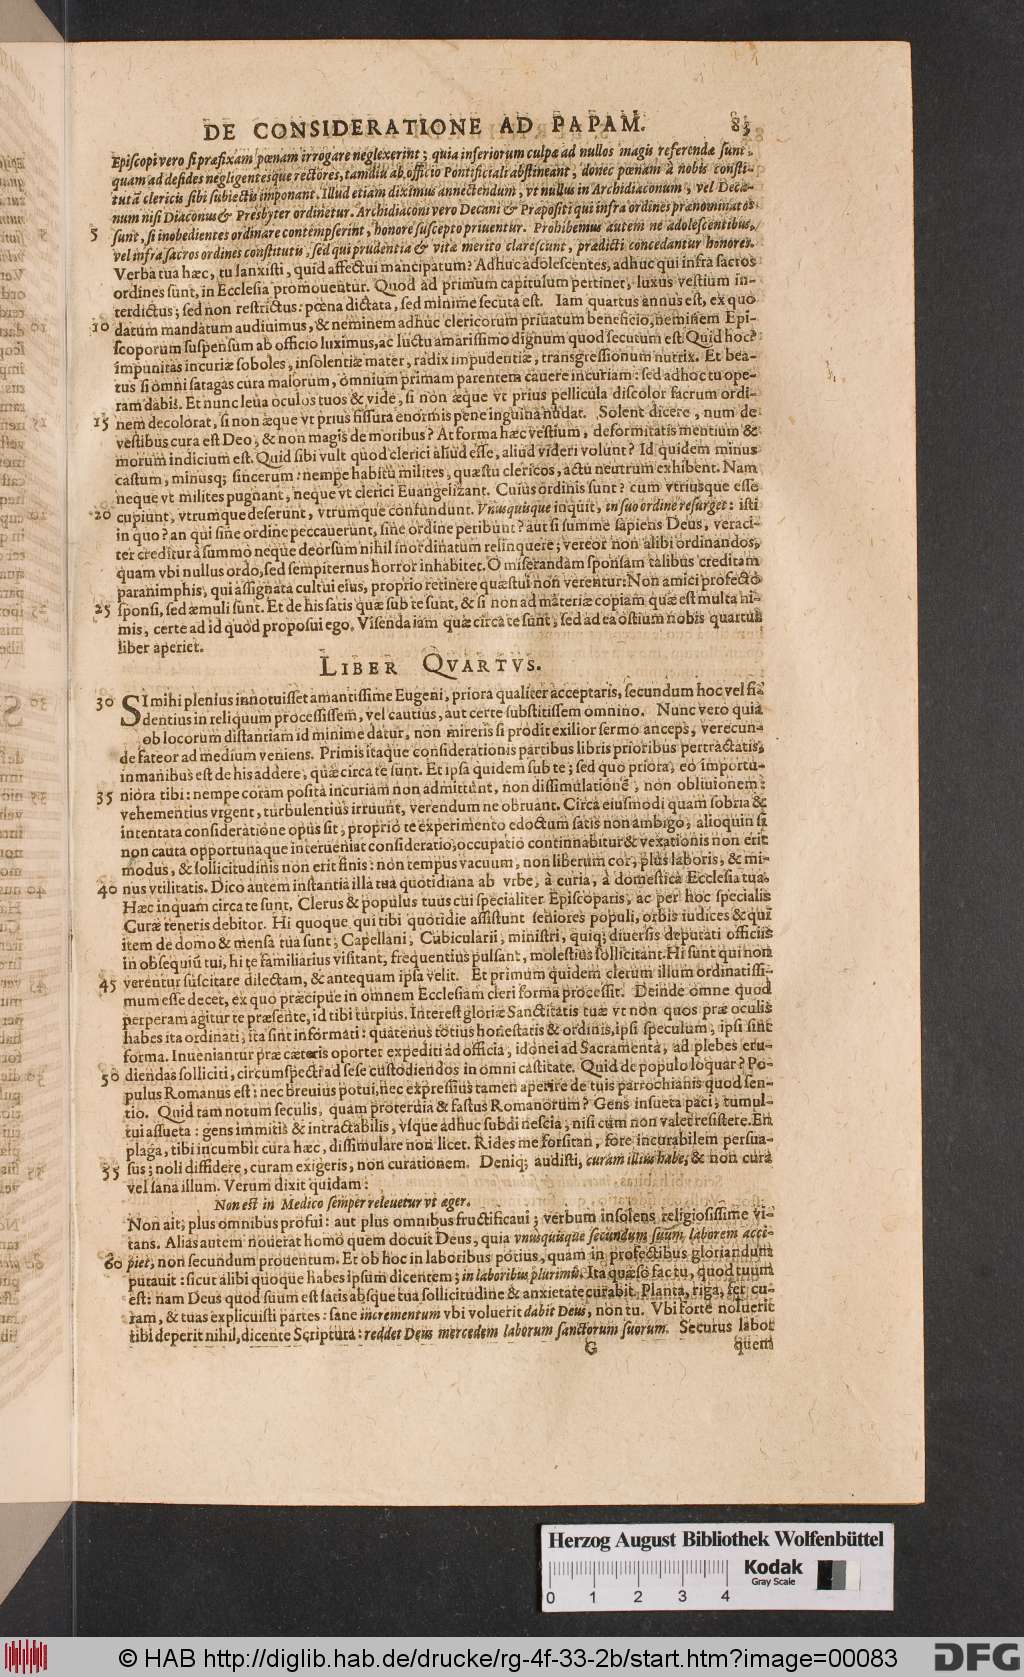 DE CONSIDERATIONE AD PAPAM. 83
Episcopi vero si præfixam pœnam irrogare neglexerint; quia inferiorum culpæ ad nullos magis referendæ sunt,
quam ad desides negligentesque rectores, tamdiu ab officio Pontificiali abstineant, donec pœnam à nobis consti-
tutā clericis sibi subiectis imponant. Illud etiam diximus annectendum, vt nullus in Archidiaconum, vel Deca-
num nisi Diaconus & Presbyter ordinetur. Archidiaconi vero Decani & Præpositi qui infra ordines prænominatos
5 sunt, si inobedientes ordinare contempserint, honore suscepto priuentur. Prohibemus autem ne adolescentibus,
vel infra sacros ordines constitutis, sed qui prudentia & vitæ merito clarescunt, prædicti concedantur honores.
Verba tua hæc, tu sanxisti, quid affectui mancipatum? Adhuc adolescentes, adhuc qui infra sacros
ordines sunt, in Ecclesia promouentur. Quod ad primum capitulum pertinet, luxus vestium in-
terdictus; sed non restrictus: pœna dictata, sed minime secuta est. Iam quartus annus est, ex quo
10 datum mandatum audiuimus, & neminem adhuc clericorum priuatum beneficio, neminem Epi-
scoporum suspensum ab officio luximus, ac luctu amarissimo dignum quod secutum est. Quid hoc?
impunitas incuriæ soboles, insolentiæ mater, radix impudentiæ, transgressionum nutrix. Et bea-
tus si omni satagas cura malorum, omnium primam parentem cauere incuriam: sed ad hoc tu ope-
ram dabis. Et nunc leua oculos tuos & vide, si non æque vt prius pellicula discolor sacrum ordi-
15 nem decolorat, si non æque vt prius fissura enormis pene inguina nudat. Solent dicere, num de
vestibus cura est Deo, & non magis de moribus? At forma hæc vestium, deformitatis mentium &
morum indicium est. Quid sibi vult quod clerici aliud esse, aliud videri volunt? Id quidem minus
castum, minusq; sincerum: nempe habitu milites, quæstu clericos, actu neutrum exhibent. Nam
neque vt milites pugnant, neque vt clerici Euangelizant. Cuius ordinis sunt? cum vtriusque esse
20 cupiunt, vtrumque deserunt, vtrumque confundunt. Vnusquisque inquit, in suo ordine resurget: isti
in quo? an qui sine ordine peccauerunt, sine ordine peribunt? aut si summe sapiens Deus, veraci-
ter creditur à summo neque deorsum nihil inordinatum relinquere; vereor non alibi ordinandos,
quam vbi nullus ordo, sed sempiternus horror inhabitet. O miserandam sponsam talibus creditam
paranimphis, qui assignata cultui eius, proprio retinere quæstui non verentur: Non amici profecto
25 sponsi, sed æmuli sunt. Et de his satis quæ sub te sunt, & si non ad materiæ copiam quæ est multa ni-
mis, certe ad id quod proposui ego. Visenda iam quæ circa te sunt, sed ad ea ostium nobis quartus
liber aperiet.
LIBER QVARTVS.
30 SI mihi plenius innotuisset amantissime Eugeni, priora qualiter acceptaris, secundum hoc vel fi-
dentius in reliquum processissem, vel cautius, aut certe substitissem omnino. Nunc vero quia
ob locorum distantiam id minime datur, non mireris si prodit exilior sermo anceps, verecun-
de fateor ad medium veniens. Primis itaque considerationis partibus libris prioribus pertractatis,
in manibus est de his addere, quæ circa te sunt. Et ipsa quidem sub te; sed quo priora, eo importu-
35 niora tibi: nempe coram posita incuriam non admittunt, non dissimulationē, non obliuionem:
vehementius vrgent, turbulentius irruunt, verendum ne obruant. Circa eiusmodi quam sobria &
intentata consideratione opus sit, proprio te experimento edoctum satis non ambigo, alioquin si
non cauta opportunaque interueniat consideratio, occupatio continnabitur & vexationis non erit
modus, & sollicitudinis non erit finis: non tempus vacuum, non liberum cor, plus laboris, & mi-
40 nus vtilitatis. Dico autem instantia illa tua quotidiana ab vrbe, à curia, à domestica Ecclesia tua.
Hæc inquam circa te sunt, Clerus & populus tuus cui specialiter Episcoparis, ac per hoc specialis
Curæ teneris debitor. Hi quoque qui tibi quotidie assistunt seniores populi, orbis iudices & qui
item de domo & mensa tua sunt, Capellani, Cubicularii, ministri, quiq; diuersis deputati officiis
in obsequiū tui, hi te familiarius visitant, frequentius pulsant, molestius sollicitant. Hi sunt qui non
45 verentur suscitare dilectam, & antequam ipsa velit. Et primum quidem clerum illum ordinatissi-
mum esse decet, ex quo præcipue in omnem Ecclesiam cleri forma processit. Deinde omne quod
perperam agitur te præsente, id tibi turpius. Interest gloriæ Sanctitatis tuæ vt non quos præ oculis
habes ita ordinati, ita sint informati: quatenus totius honestatis & ordinis, ipsi speculum, ipsi sint
forma. Inueniantur præ cæteris oportet expediti ad officia, idonei ad Sacramenta, ad plebes eru-
50 diendas solliciti, circumspecti ad sese custodiendos in omni castitate. Quid de populo loquar? Po-
pulus Romanus est: nec breuius potui, nec expressius tamen aperire de tuis parrochianis quod sen-
tio. Quid tam notum seculis, quam proteruia & fastus Romanorum? Gens insueta paci, tumul-
tui assueta: gens immitis & intractabilis, vsque adhuc subdi nescia, nisi cum non valet resistere. En
plaga, tibi incumbit cura hæc, dissimulare non licet. Rides me forsitan, fore incurabilem persua-
55 sus; noli diffidere, curam exigeris, non curationem. Deniq; audisti, curam illius habe, & non cura
vel sana illum. Verum dixit quidam:
Non est in Medico semper releuetur vt æger.
Non ait; plus omnibus profui: aut plus omnibus fructificaui; verbum insolens religiosissime vi-
tans. Alias autem nouerat homo quem docuit Deus, quia vnusquisque secundum suum laborem acci-
60 piet, non secundum prouentum. Et ob hoc in laboribus potius, quam in profectibus gloriandum
putauit: sicut alibi quoque habes ipsum dicentem; in laboribus plurimis. Ita quæso fac tu, quod tuum
est: nam Deus quod suum est satis absque tua sollicitudine & anxietate curabit. Planta, riga, fer cu-
ram, & tuas explicuisti partes: sane incrementum vbi voluerit dabit Deus, non tu. Vbi forte noluerit
tibi deperit nihil, dicente Scriptura: reddet Deus mercedem laborum sanctorum suorum. Securus labor
G quem
Herzog August Bibliothek Wolfenbüttel
Kodak
Gray Scale
0 1 2 3 4
© HAB http://diglib.hab.de/drucke/rg-4f-33-2b/start.htm?image=00083
DFG